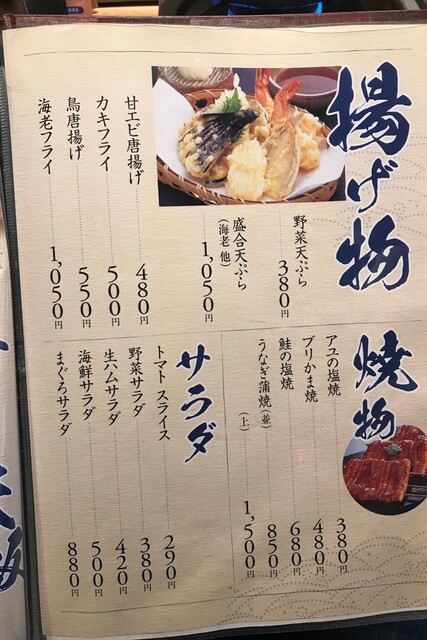 揚げ物
野菜天ぷら 380円
盛合天ぷら(海老 他) 1,050円
甘エビ唐揚げ 480円
カキフライ 500円
鳥唐揚げ 550円
海老フライ 1,050円
焼物
アユの塩焼 380円
ブリかま焼 480円
鮭の塩焼 680円
うなぎ蒲焼(並) 850円
(上) 1,500円
サラダ
トマト スライス 290円
野菜サラダ 380円
生ハムサラダ 420円
海鮮サラダ 500円
まぐろサラダ 880円